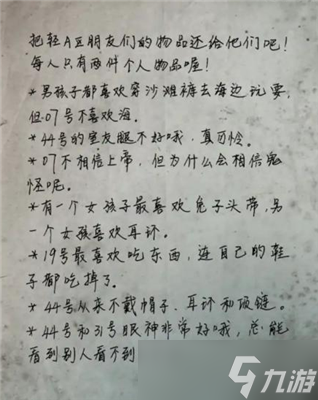 把轻A区朋友们的物品还给他们吧!
每人只有两件个人物品喔!
*男孩子都喜欢穿沙滩裤去海边玩耍,
但07号不喜欢海。
*44号的室友腿不好哦,真可怜。
*07不相信上帝,但为什么会相信鬼
怪呢。
*有一个女孩子最喜欢兔子头带,另
一个女孩喜欢耳环。
*19号最喜欢吃东西,连自己的鞋
子都吃掉了。
*44号从来不戴帽子、耳环和项链。
*44号和31号眼神非常好哦,总能
看到别人看不到
九游